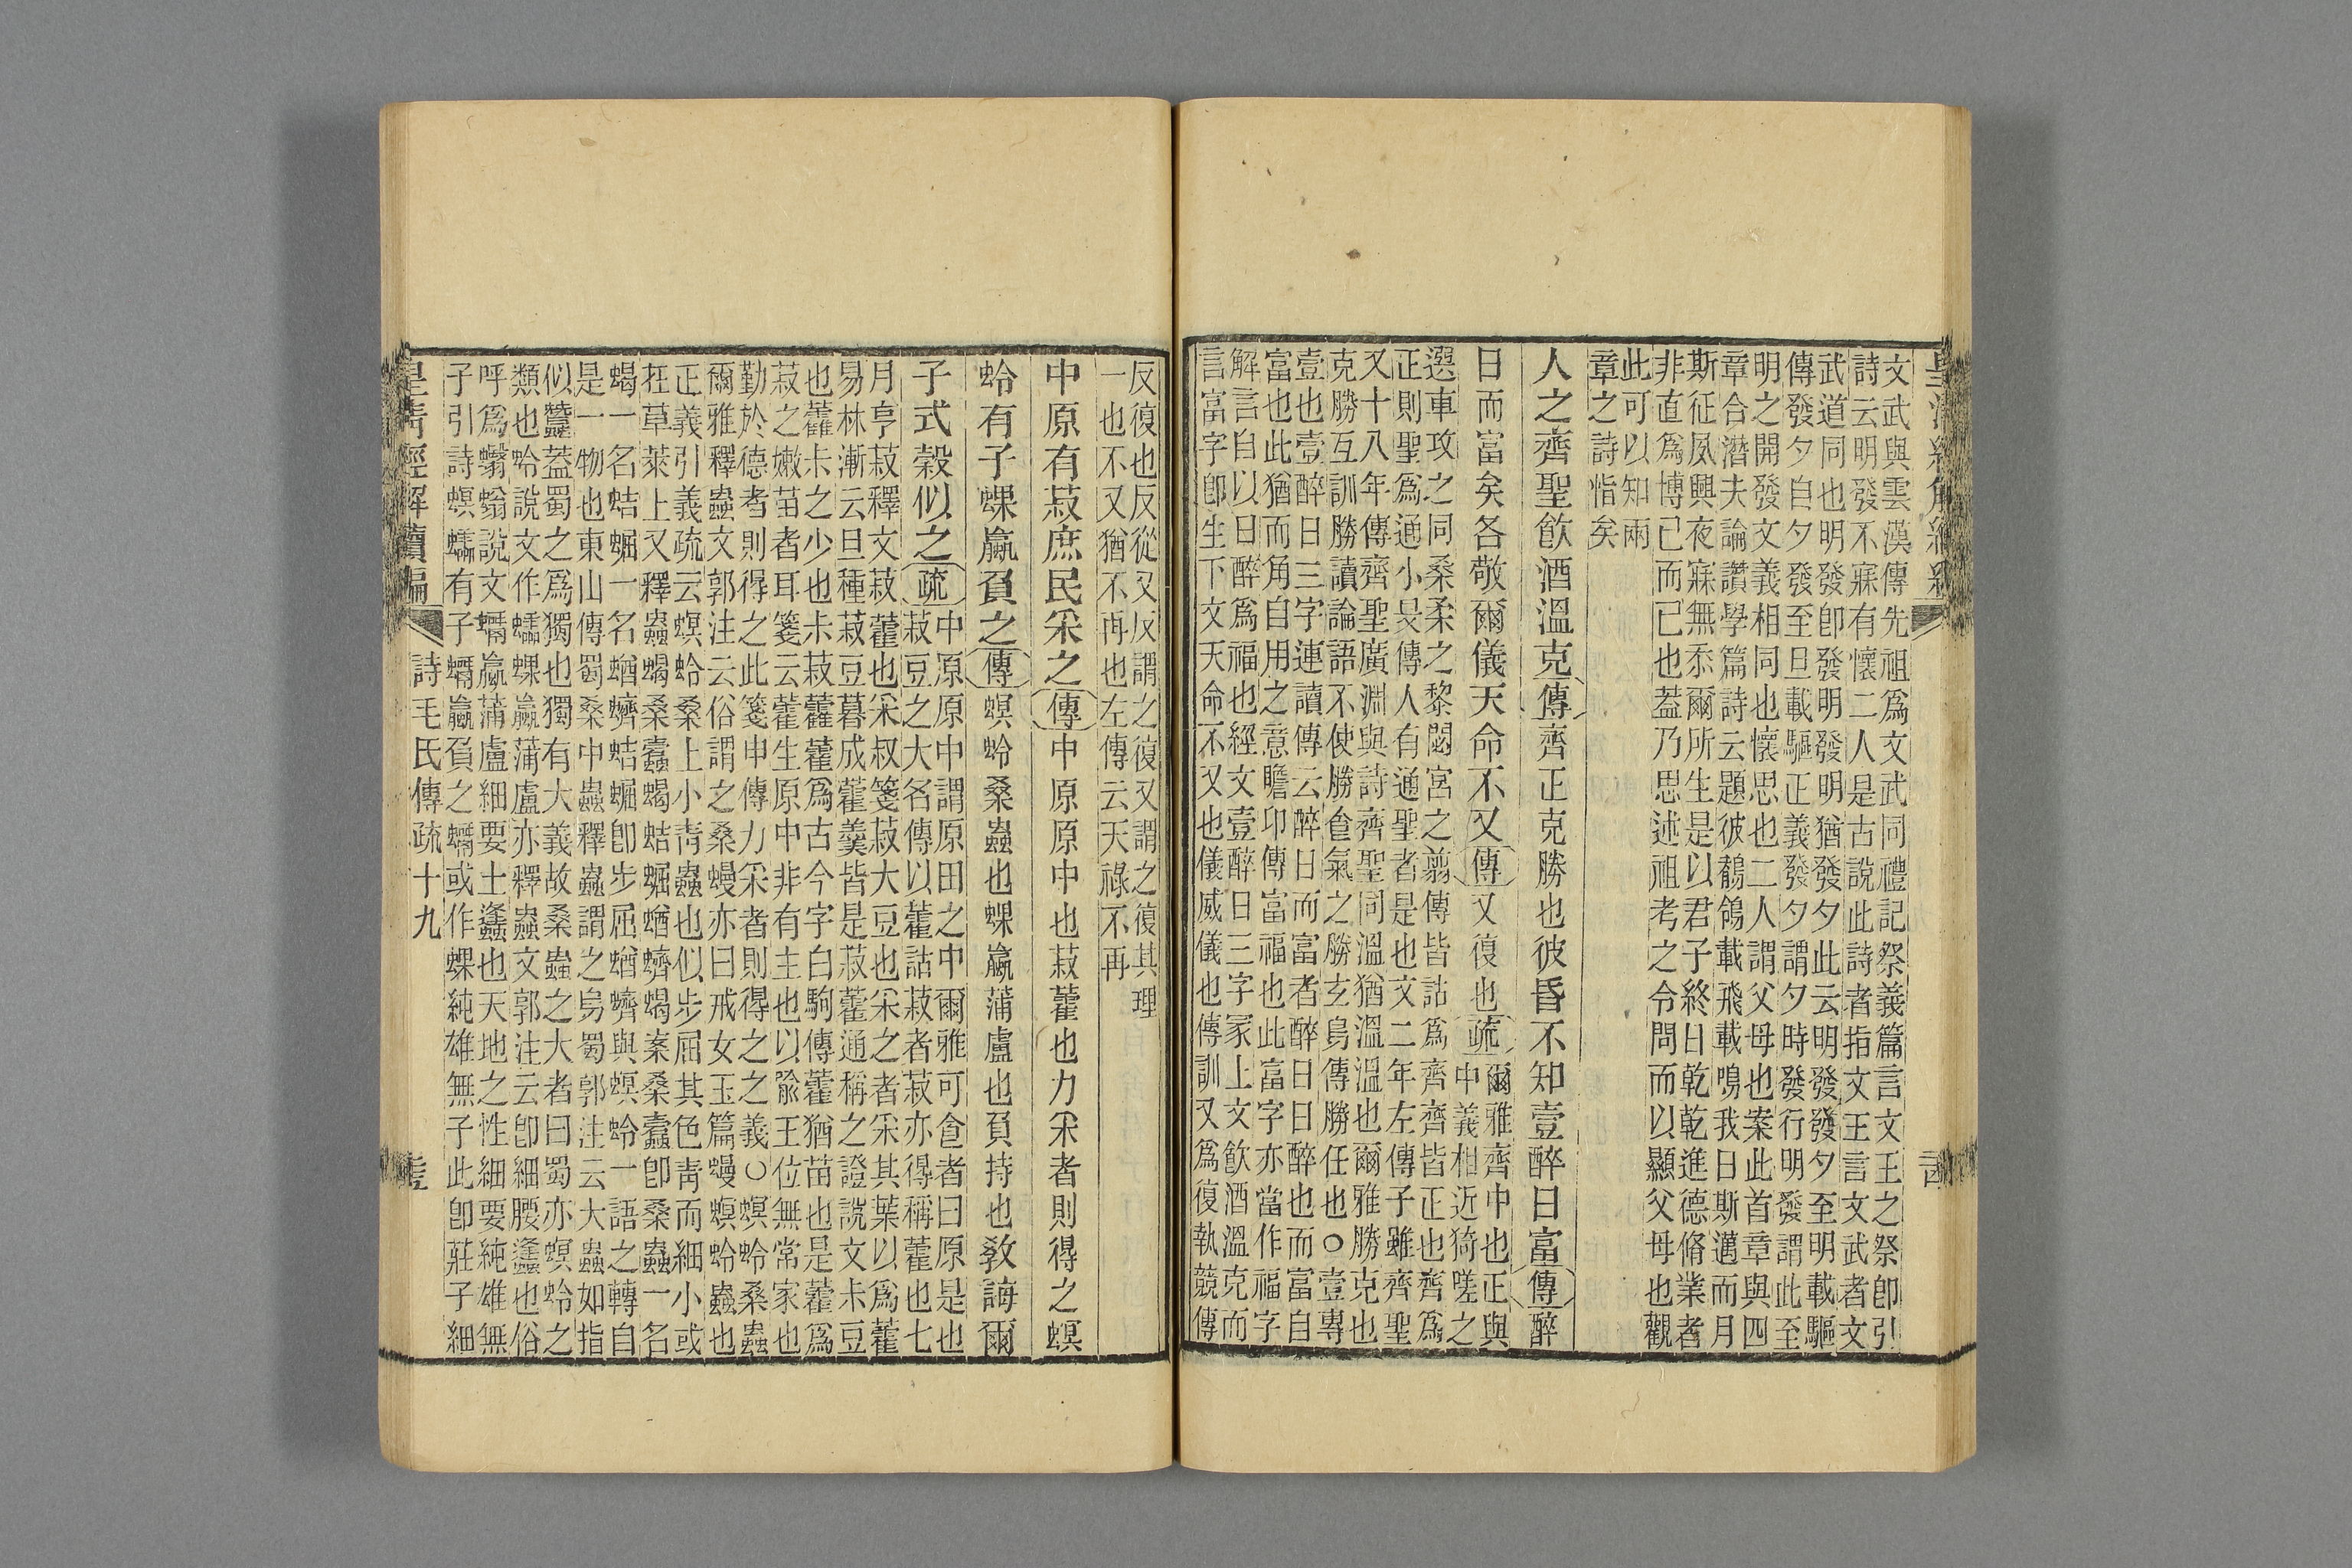 文武與雲漢傳先祖爲文武同禮記祭義篇言文王之祭卽引
詩云明發不寐有懷二人是古說此詩者指文王言文武者文
武道同也明發卽發明發明猶發夕此云明發發夕至明載驅
傳發夕自夕發至旦載驅正義發夕謂夕時發行明發謂此至
明之開發文義相同也懷思也二人謂父母也案此首章與四
章合潛夫論讚學篇詩云題彼鶺鴒載飛載鳴我日斯邁而月
斯征夙興夜寐無忝爾所生是以君子終日乾乾進德脩業者
非直爲博已而已也葢乃思述祖考之令問而以顯父母也觀
此可以知兩
章之詩恉矣
人之齊聖飮酒溫克傳齊正克勝也彼昏不知壹醉日富傳醉
日而富矣各敬爾儀天命不又傳又復也疏爾雅齊中也正與
中義相近猗嗟之
選車攻之同桑柔之黎閟宮之翦傳皆詁爲齊齊皆正也齊爲
正則聖爲通小旻傳人有通聖者是也文二年左傳子雖齊聖
又十八年傳齊聖廣淵與詩齊聖同溫猶溫溫也爾雅勝克也
克勝互訓勝讀論語不使勝食氣之勝玄鳥傳勝任也○壹專
壹也壹醉日三字連讀傳云醉日而富者醉日日醉也而富自
富也此猶而角自用之意瞻卬傳富福也此富字亦當作福字
解言自以日醉爲福也經文壹醉日三字冢上文飮酒溫克而
言富字卽生下文天命不又也儀威儀也傳訓又爲復執競傳
反復也反從又反謂之復又謂之復其理
一也不又猶不再也左傳云天祿不再
中原有菽庶民采之傳中原原中也菽藿也力采者則得之螟
蛉有子蜾蠃負之傳螟蛉桑蟲也蜾蠃蒲盧也負持也敎誨爾
子式穀似之疏中原原中謂原田之中爾雅可食者曰原是也
菽豆之大名傳以藿詁菽者菽亦得稱藿也七
月亨菽釋文菽藿也采叔箋菽大豆也采之者采其葉以爲藿
易林漸云旦種菽豆暮成藿羹皆是菽藿通稱之證說文尗豆
也藿尗之少也尗菽藿藿爲古今字白駒傳藿猶苗也是藿爲
菽之嫩苗者耳箋云藿生原中非有主也以喩王位無常家也
勤於德者則得之此箋申傳力采者則得之之義○螟蛉桑蟲
爾雅釋蟲文郭注云俗謂之桑蟃亦曰戎女玉篇蟃螟蛉蟲也
正義引義疏云螟蛉桑上小靑蟲也似步屈其色靑而細小或
在草萊上又釋蟲蝎桑蠹蝎蛣𧌑蝤蠐蝎案桑蠹卽桑蟲一名
蝎一名蛣𧌑一名蝤蠐蛣𧌑卽步屈蝤蠐與螟蛉一語之轉自
是一物也東山傳蜀桑中蟲釋蟲謂之烏蜀郭注云大蟲如指
似蠶葢蜀之爲獨也獨有大義故桑蟲之大者曰蜀亦螟蛉之
類也蛉說文作蠕蜾蠃蒲盧亦釋蟲文郭注云卽細腰蠭也俗
呼爲蠮螉說文蠣蠃蒲盧細要土蠭也天地之性細要純雄無
子引詩螟蠕有子蠣蠃負之蠣或作蜾純雄無子此卽莊子細
皇清經解續編 詩毛氏傳疏十九